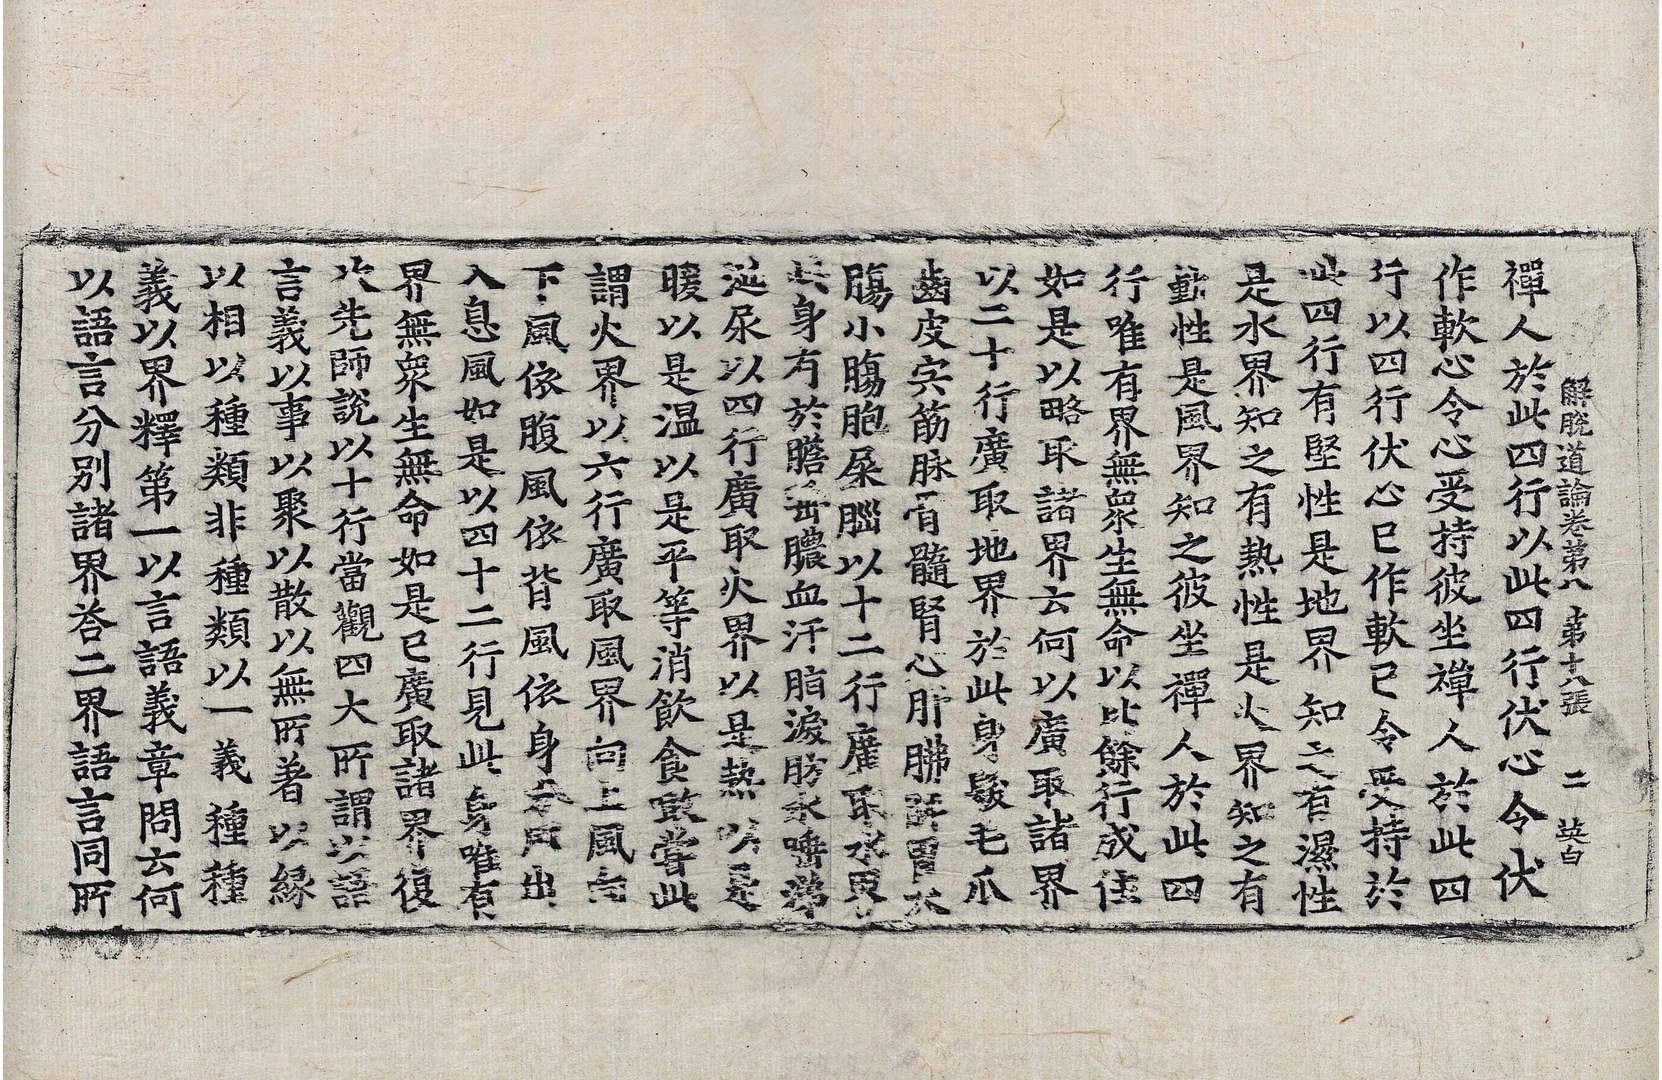 解脫道論卷第八　第十八張　二　英白
禪人於此四行以此四行伏心令伏
作軟心令心受持彼坐禪人於此四
行以四行伏心已作軟已令受持於
此四行有堅性是地界知之有濕性
是水界知之有熱性是火界知之有
動性是風界知之彼坐禪人於此四
行唯有界無衆生無命以比餘行成住
如是以略取諸界云何以廣取諸界
以二十行廣取地界於此身髮毛爪
齒皮宍筋脉骨髓腎心肝胏脾胃大
膓小膓胞屎腦以十二行廣取水界
此身有於膽唾膿血汗脂淚肪水唾涕
涎尿以四行廣取火界以是熱以是
暖以是温以是平等消飲食噉嘗此
謂火界以六行廣取風界向上風向
下風依腹風依背風依身分風出
入息風如是以四十二行見此身唯有
界無衆生無命如是已廣取諸界復
次先師說以十行當觀四大所謂以語
言義以事以聚以散以無所著以緣
以相以種類非種類以一義種種
義以界釋第一以言語義章問云何
以語言分別諸界荅二界語言同所